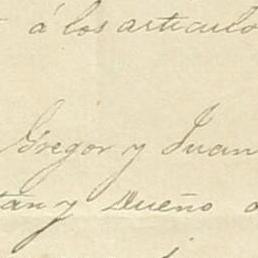 á los articulo
Gregor y Juan
tan y Dueño